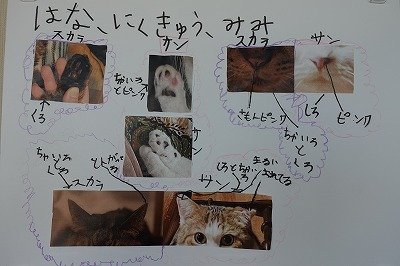 はな、にくきゅう、みみ
スカラ
サン
スカラ
サン
ちゃいろ
とピンク
くろ
さもんピンク
しろ
ピンク
ちゃいろ
と
くろ
サン
ちゃいろ
くろ
とんがってる
スカラ
サン
しろとちゃいろ
まるい
おれてる